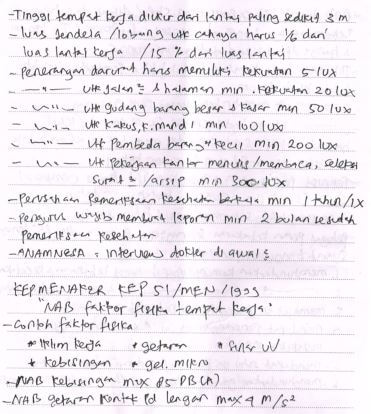 - Tinggi tempat kerja diukur dari lantai paling sedikit 3 m
- luas jendela / lobang utk cahaya harus 1/6 dari
luas lantai kerja / 15 % dari luas lantai
- Penerangan darurat harus memiliki kekuatan 5 lux
- —"— utk jalan² & halaman min. kekuatan 20 lux
- —"— utk gudang barang besar & kasar min 50 lux
- —"— utk kakus, k. mandi min 100 lux
- —"— utk Pembeda barang² kecil min 200 lux
- —"— utk Pekerjaan kantor menulis / membaca, seleksi
surat² / arsip min 300 lux
- Perusahaan Pemeriksaan kesehatan berkala min 1 tahun/1x
- Pengurus wajib membuat laporan min 2 bulan sesudah
Pemeriksaan kesehatan
- ANAMNESA : interview dokter di awal²
KEPMENAKER KEP 51/MEN/1999
"NAB faktor fisika tempat kerja"
- Contoh faktor fisika
* iklim kerja * getaran * sinar UV
* kebisingan * gel. mikro
- NAB kebisingan max 85 DB (A)
- NAB getaran kontak Pd lengan max 4 m/s²